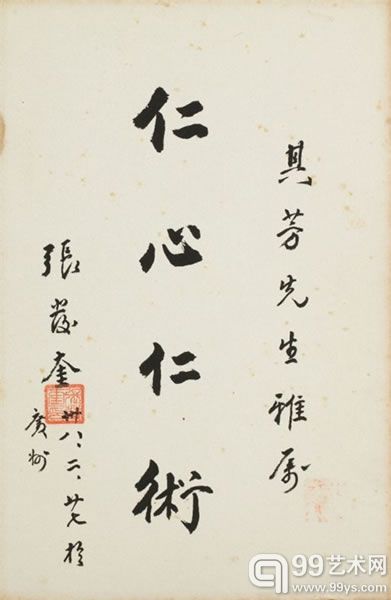 其芳先生雅属
仁心仁術
張發奎
卅八、二、廿七於
廣州
99艺术网
www.99ys.com